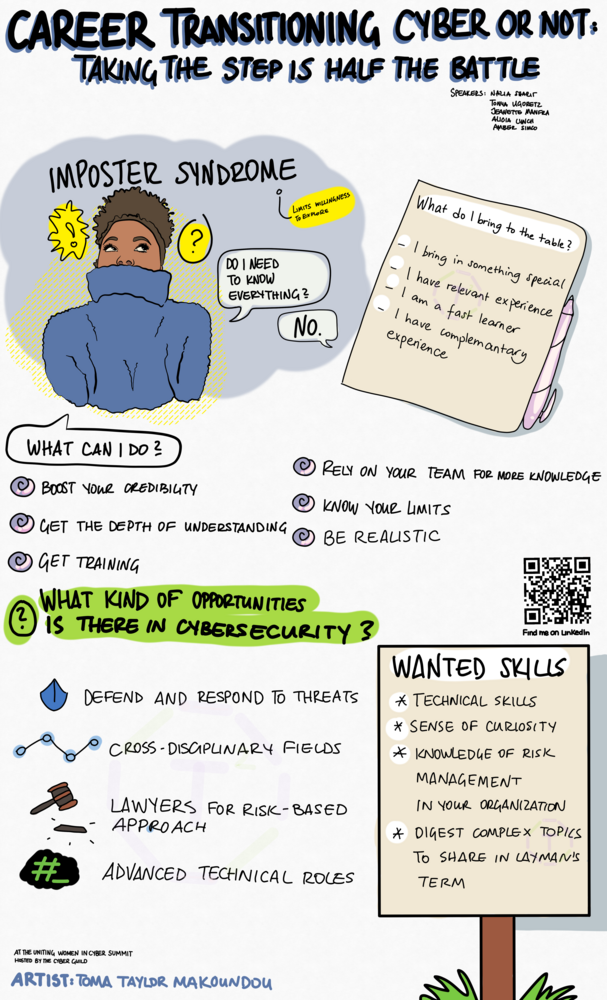 CAREER TRANSITIONING CYBER OR NOT:
TAKING THE STEP IS HALF THE BATTLE
SPEAKERS:
JEANETTE MANFRA
ALICIA LYNCH
AMBER
IMPOSTER SYNDROME
LIMITS WILLINGNESS
TO EXPLORE
!
?
DO I NEED
TO KNOW
EVERYTHING?
NO.
What do I bring to the table?
- I bring in something special
- I have relevant experience
- I am a fast learner
- I have complemantary
experience
WHAT CAN I DO?
BOOST YOUR CREDIBILITY
GET THE DEPTH OF UNDERSTANDING
GET TRAINING
RELY ON YOUR TEAM FOR MORE KNOWLEDGE
KNOW YOUR LIMITS
BE REALISTIC
Find me on LinkedIn
? WHAT KIND OF OPPORTUNITIES
IS THERE IN CYBERSECURITY?
DEFEND AND RESPOND TO THREATS
CROSS-DISCIPLINARY FIELDS
LAWYERS FOR RISK-BASED
APPROACH
#_ ADVANCED TECHNICAL ROLES
WANTED SKILLS
* TECHNICAL SKILLS
* SENSE OF CURIOSITY
* KNOWLEDGE OF RISK
MANAGEMENT
IN YOUR ORGANIZATION
* DIGEST COMPLEX TOPICS
TO SHARE IN LAYMAN'S
TERM
AT THE UNITING WOMEN IN CYBER SUMMIT
HOSTED BY THE CYBER GUILD
ARTIST: TOMA TAYLOR MAKOUNDOU